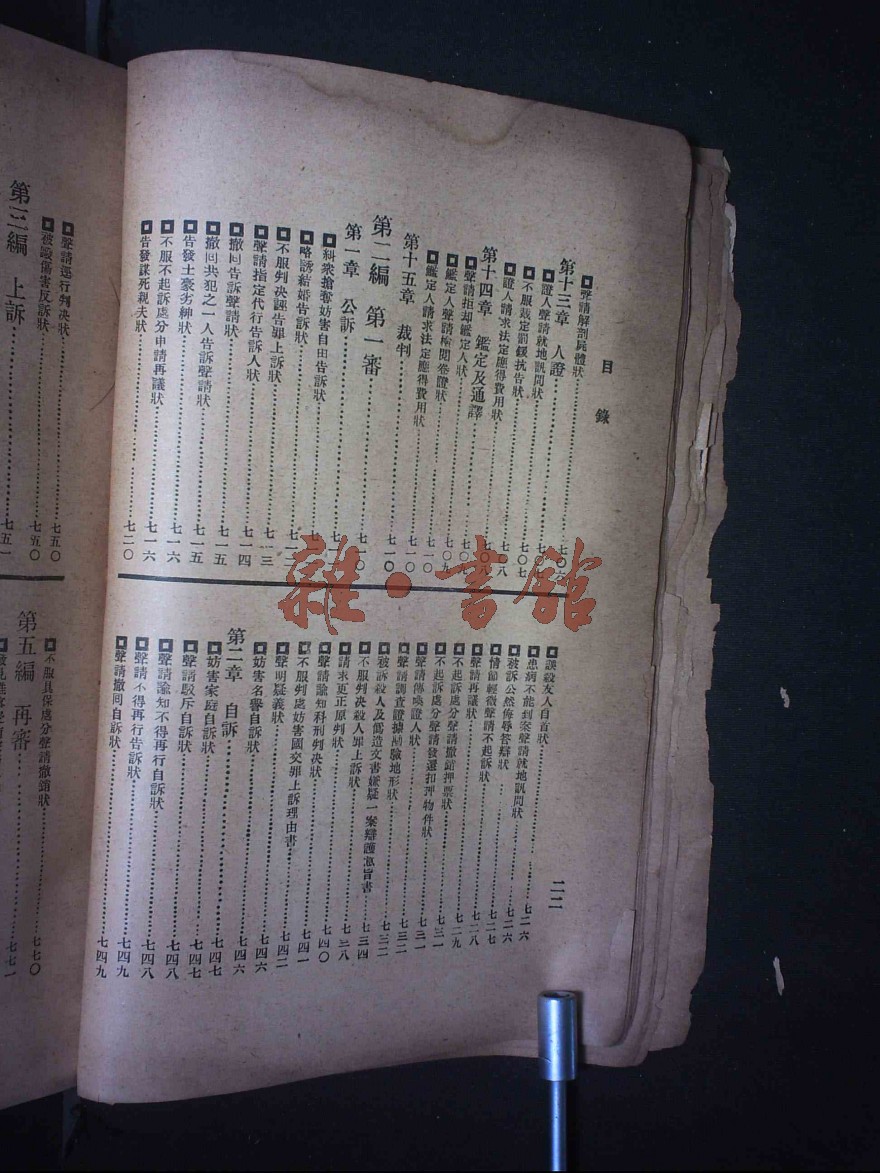 目錄
聲請解剖屍體狀
第十三章 人證
證人聲請就地訊問狀
不服裁定罰鍰抗告狀 七〇七
證人請求法定應得費用狀 七〇八
第十四章 鑑定及通譯 七〇八
聲請拒却鑑定人狀 七〇
鑑定人聲請檢閱卷證狀 七〇九
鑑定人請求法定應得費用狀 七一〇
第十五章 裁判 七一〇
第二編 第一審 七一〇
第一章 公訴 七一〇
糾衆搶奪妨害自由告訴狀
略誘結婚告訴狀
不服判决誣告罪上訴狀 七一二
聲請指定代行告訴人狀 七一三
撤回告訴聲請狀 七一四
撤回共犯之一人告訴聲請狀 七一五
告發土豪劣紳狀 七一五
不服不起訴處分申請再議狀 七一六
告發謀死親夫狀 七二〇
謀殺友人自首狀 七二六
患病不能到案聲請就地訊問狀 七二六
被訴公然侮辱答辯狀 七二七
情節輕微聲請不起訴狀 七二八
聲請再議狀
不起訴處分聲請撤銷押票狀 七二九
不起訴處分聲請發還扣押物件狀 七三一
聲請傳喚證人狀 七三一
聲請調查證據勘驗地形狀 七三二
被訴殺人及僞造文書嫌疑一案辯護意旨書
不服判决殺人罪上訴狀 七三四
請求更正原判狀 七三八
聲請諭知科刑判决狀 七四〇
不服判處妨害國交罪上訴理由書 七四一
聲明疑義狀 七四二
妨害名譽自訴狀 七四六
第二章 自訴 七四六
妨害家庭自訴狀 七四七
聲請駁斥自訴狀 七四七
聲請諭知不得再行自訴狀 七四八
聲請不得再行告訴狀 七四八
聲請撤回自訴狀 七四九
七四九
二二
聲請逕行判决狀 七五〇
被毆傷害反訴狀 七五〇
第三編 上訴 七五一
不服具保處分聲請撤銷狀 七七〇
第五編 再審 七七一
雜·書館